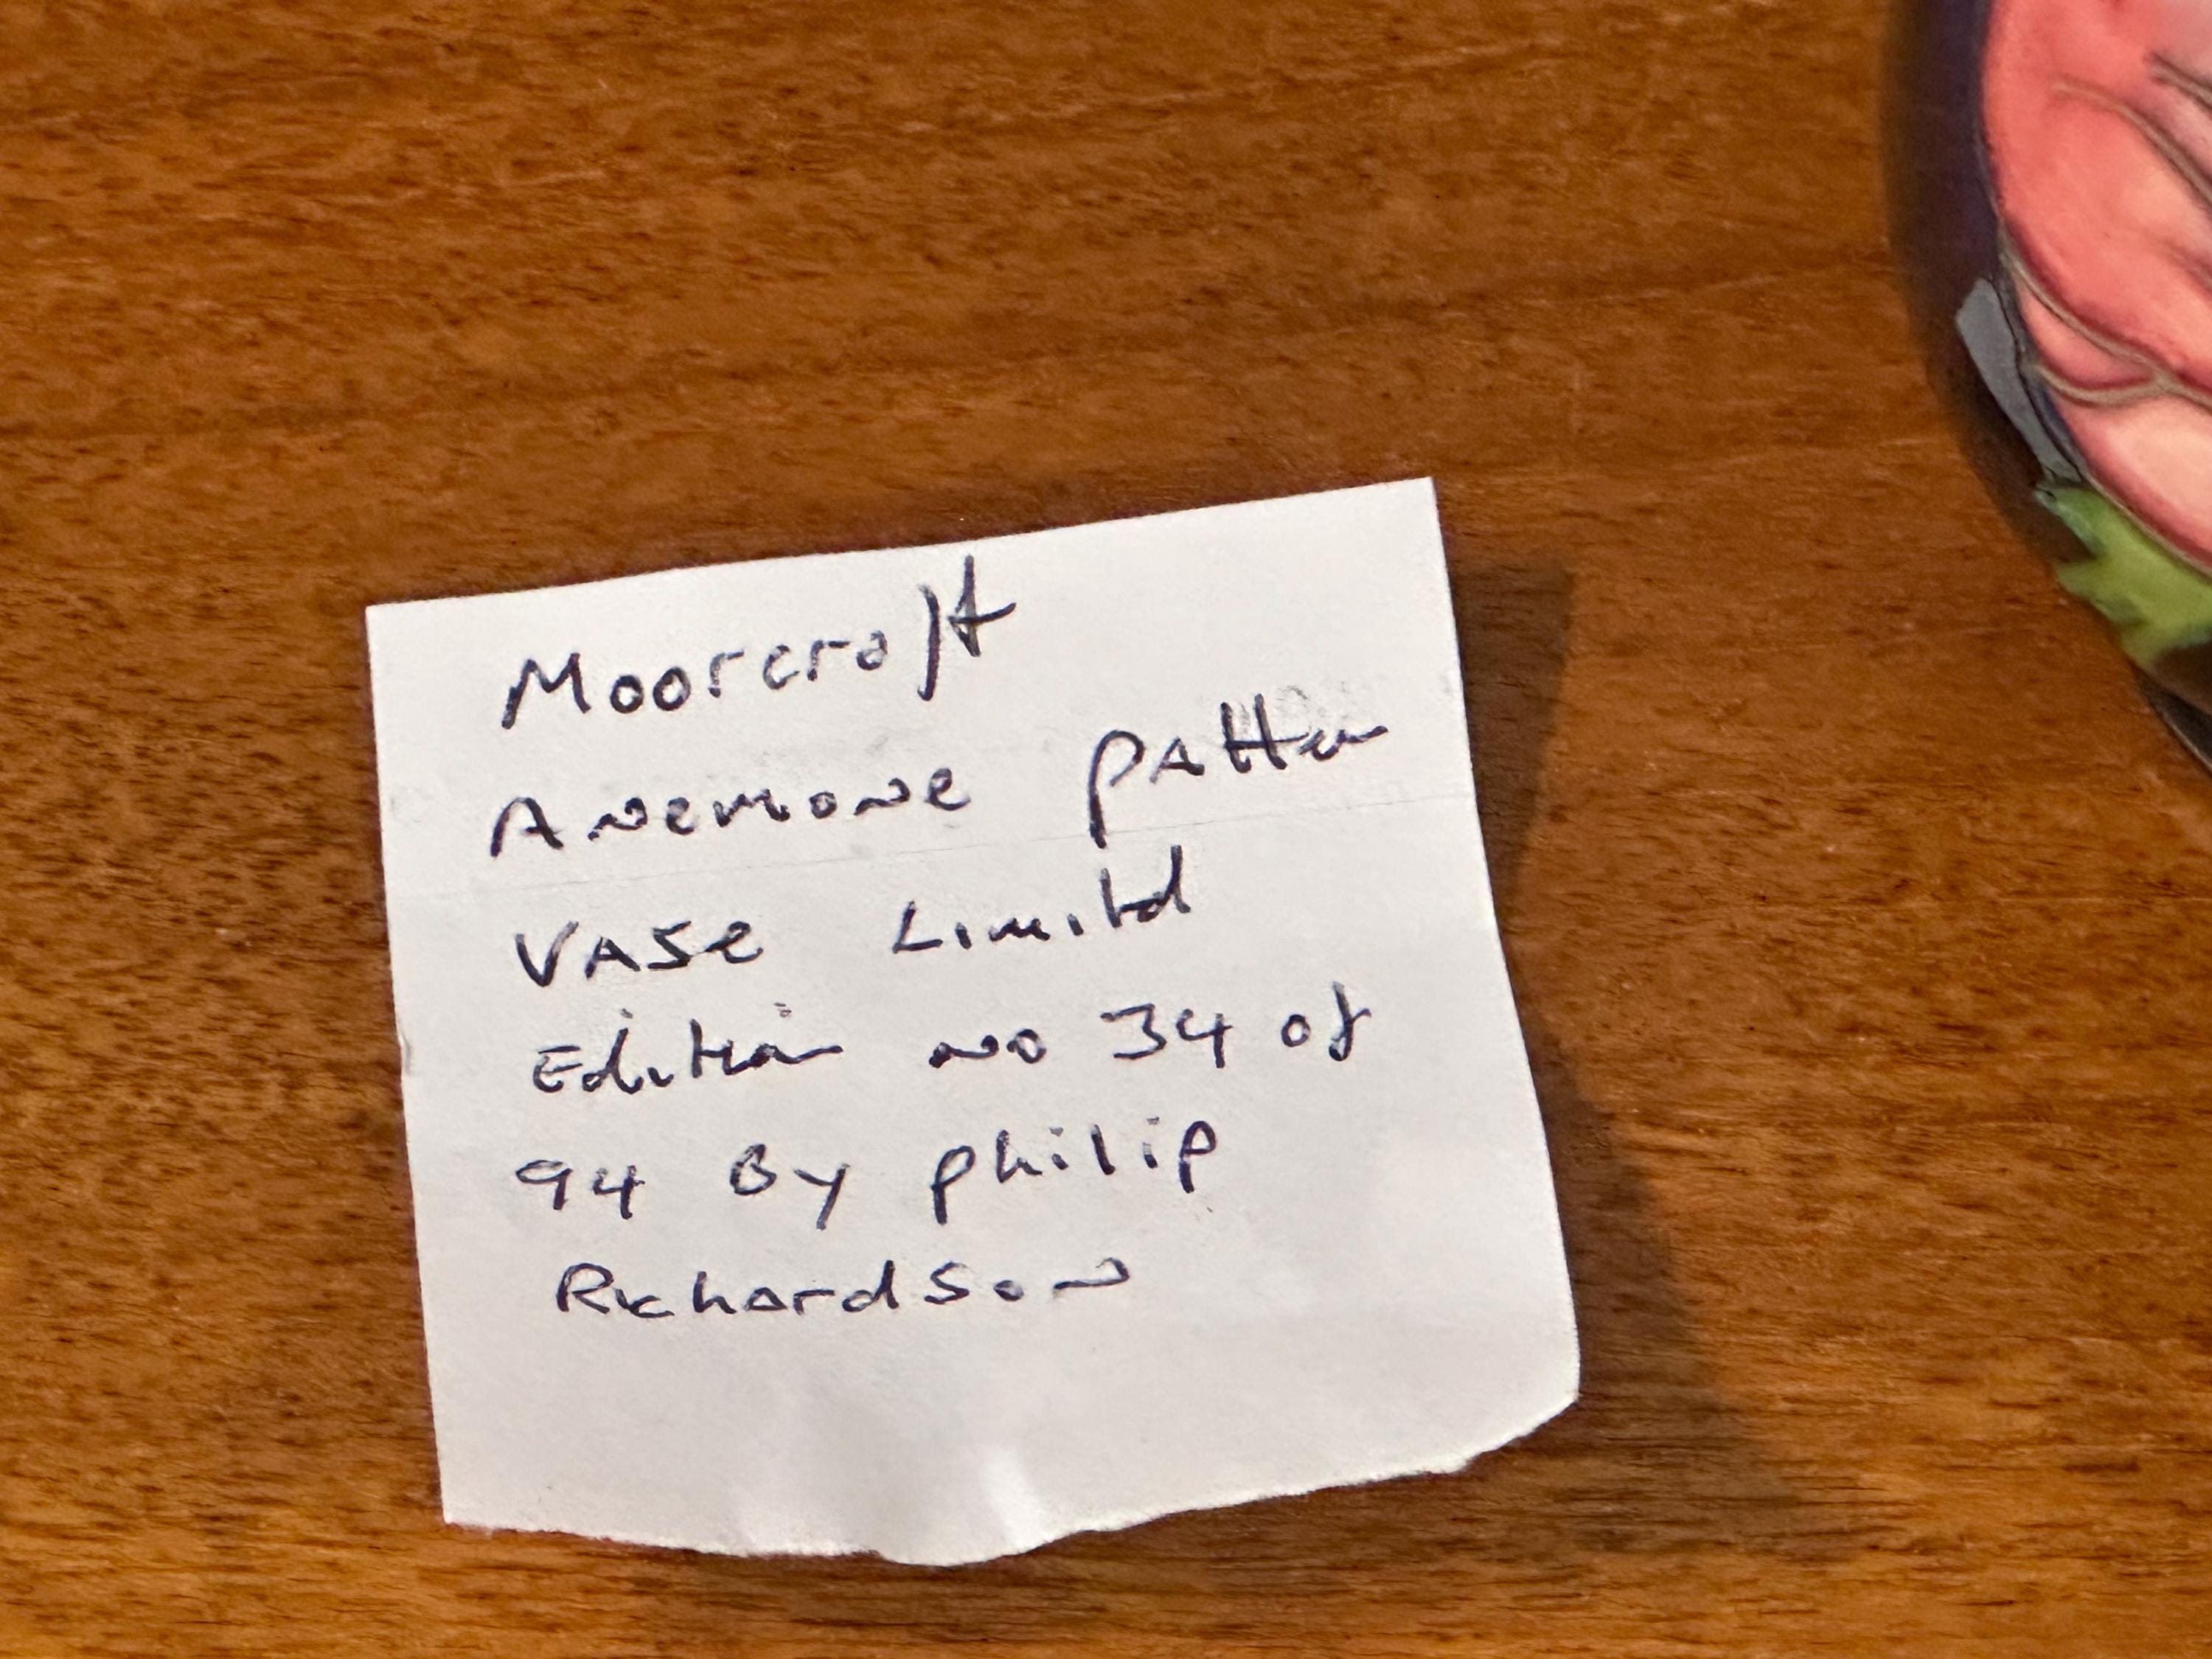 Moorcroft
Anemone pattern
VASe Limited
Edition no 34 of
94 By philip
Richardson